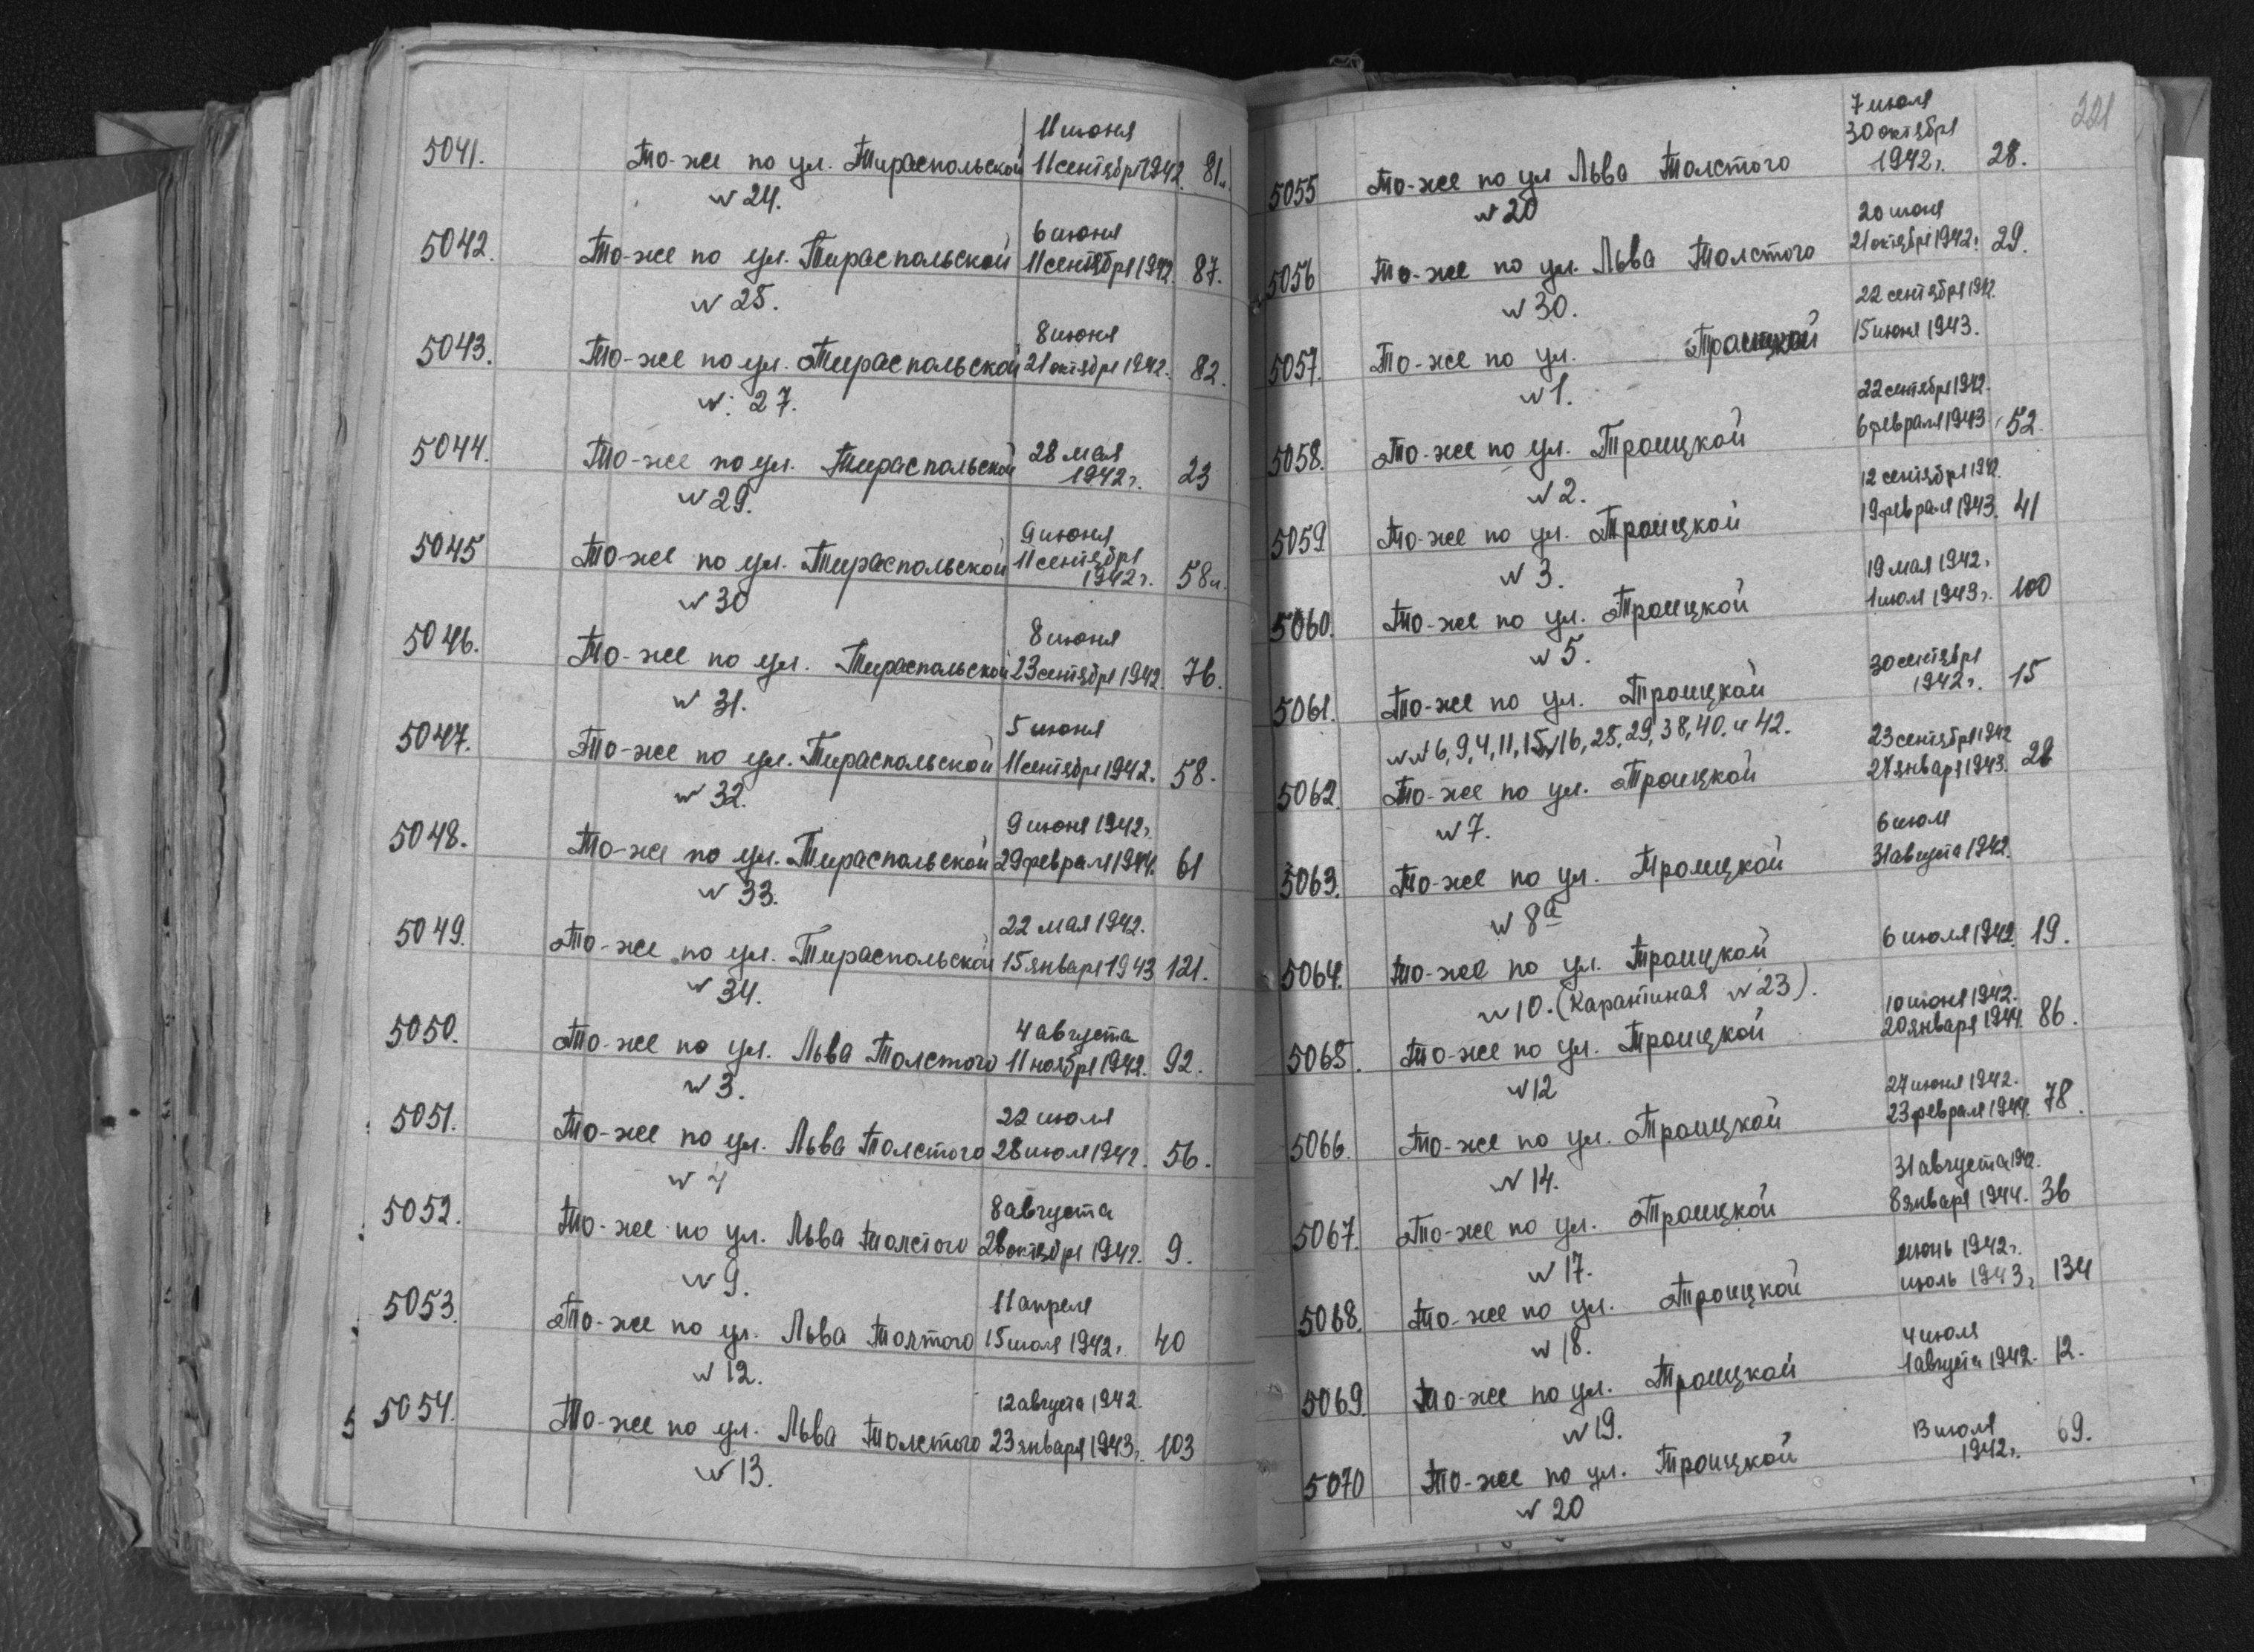 11 июня
5041. То-же по ул. Тираспольской 11 сентября 1942. 81 л.
№ 24.
6 июня
5042. То-же по ул. Тираспольской 11 сентября 1942. 87.
№ 25.
8 июня
5043. То-же по ул. Тираспольской 21 октября 1942. 82.
№ 27.
28 мая
5044. То-же по ул. Тираспольской 1942 г. 23
№ 29.
9 июня
5045 То-же по ул. Тираспольской 11 сентября
1942 г. 58 л.
№ 30
8 июня
5046. То-же по ул. Тираспольской 23 сентября 1942. 76.
№ 31.
5 июня
5047. То-же по ул. Тираспольской 11 сентября 1942. 58.
№ 32.
9 июня 1942 г.
5048. То-же по ул. Тираспольской 29 февраля 1944. 61
№ 33.
22 мая 1942.
5049. То-же по ул. Тираспольской 15 января 1943 121.
№ 34.
4 августа
5050. То-же по ул. Льва Толстого 11 ноября 1942. 92.
№ 3.
22 июля
5051. То-же по ул. Льва Толстого 28 июля 1942. 56.
№ 4
8 августа
5052. То-же по ул. Льва Толстого 28 октября 1942. 9.
№ 9.
11 апреля
5053. То-же по ул. Льва Толтого 15 июля 1942 г. 40
№ 12.
12 августа 1942.
5054. То-же по ул. Льва Толстого 23 января 1943 г. 103
№ 13.
221
7 июля
30 октября
5055 То-же по ул Льва Толстого 1942 г. 28.
№ 20
20 июня
5056 То-же по ул. Льва Толстого 21 октября 1942 г. 29.
№ 30.
22 сентября 1942.
5057. То-же по ул. Троицкой 15 июня 1943.
№ 1.
22 сентября 1942.
5058. То-же по ул. Троицкой 6 февраля 1943 52.
№ 2.
12 сентября 1942.
5059 То-же по ул. Троицкой 19 февраля 1943. 41
№ 3.
19 мая 1942 г.
5060. То-же по ул. Троицкой 1 июля 1943 г. 100
№ 5.
30 сентября
5061. То-же по ул. Троицкой 1942 г. 15
№№ 6, 9, 4, 11, 15, 16, 25, 29, 38, 40. и 42.
23 сентября 1942
5062. То-же по ул. Троицкой 27 января 1943. 28
№ 7.
6 июля
5063. То-же по ул. Троицкой 31 августа 1942.
№ 8а
5064. То-же по ул. Троицкой 6 июля 1942. 19.
№ 10. (Карантиная № 23).
10 июня 1942.
5065. То-же по ул. Троицкой 20 января 1944. 86.
№ 12
27 июня 1942.
5066. То-же по ул. Троицкой 23 февраля 1944. 78.
№ 14.
31 августа 1942.
5067. То-же по ул. Троицкой 8 января 1944. 36
№ 17.
июнь 1942 г.
5068. То-же по ул. Троицкой июль 1943 г. 134
№ 18.
4 июля
5069. То-же по ул. Троицкой 1 августа 1942. 12.
№ 19.
13 июля
5070 То-же по ул. Троицкой 1942 г. 69.
№ 20